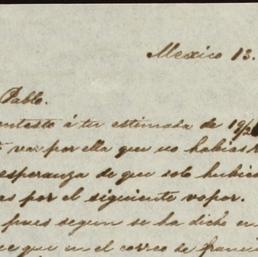 Mexico 13.
Pablo.
á tu estimada de 19/
por ella que no habias
esperanza de que solo
as por el siguiente vapor.
pues segun se ha dicho en
que en el correo de